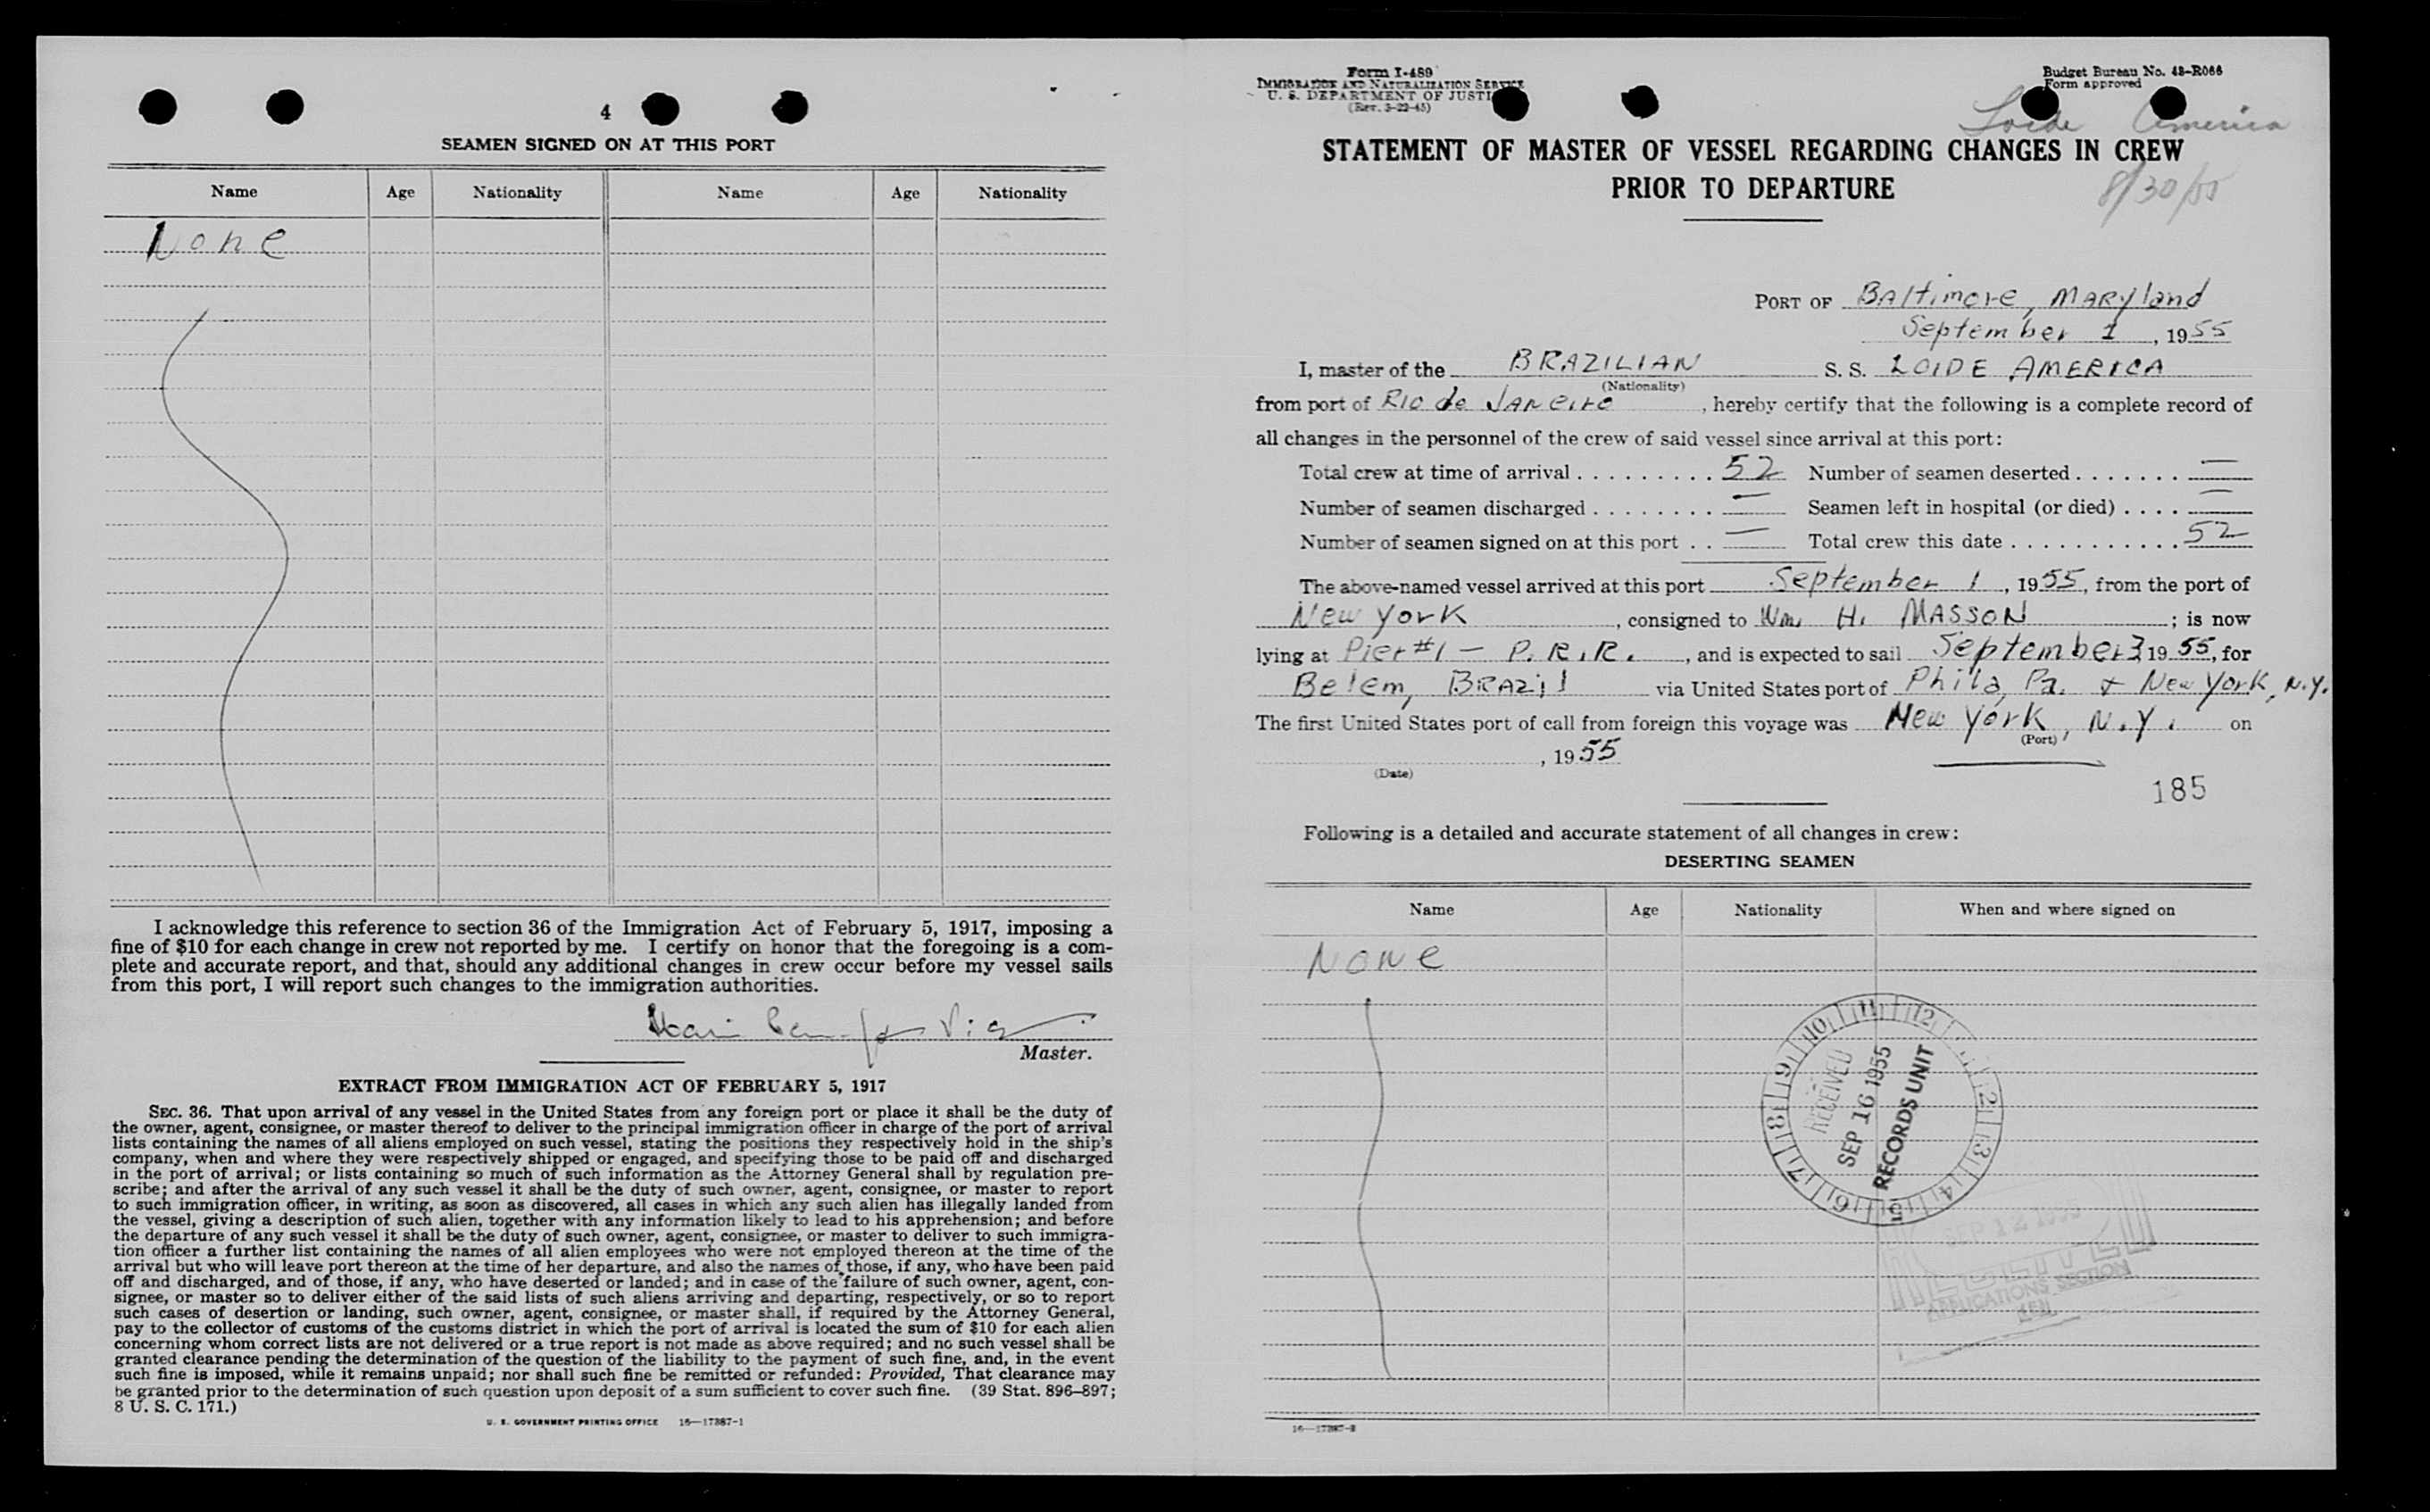 4
SEAMEN SIGNED ON AT THIS PORT
Name Age Nationality Name Age Nationality
None
I acknowledge this reference to section 36 of the Immigration Act of February 5, 1917, imposing a
fine of $10 for each change in crew not reported by me. I certify on honor that the foregoing is a com-
plete and accurate report, and that, should any additional changes in crew occur before my vessel sails
from this port, I will report such changes to the immigration authorities.
Master.
EXTRACT FROM IMMIGRATION ACT OF FEBRUARY 5, 1917
SEC. 36. That upon arrival of any vessel in the United States from any foreign port or place it shall be the duty of
the owner, agent, consignee, or master thereof to deliver to the principal immigration officer in charge of the port of arrival
lists containing the names of all aliens employed on such vessel, stating the positions they respectively hold in the ship's
company, when and where they were respectively shipped or engaged, and specifying those to be paid off and discharged
in the port of arrival; or lists containing so much of such information as the Attorney General shall by regulation pre-
scribe; and after the arrival of any such vessel it shall be the duty of such owner, agent, consignee, or master to report
to such immigration officer, in writing, as soon as discovered, all cases in which any such alien has illegally landed from
the vessel, giving a description of such alien, together with any information likely to lead to his apprehension; and before
the departure of any such vessel it shall be the duty of such owner, agent, consignee, or master to deliver to such immigra-
tion officer a further list containing the names of all alien employees who were not employed thereon at the time of the
arrival but who will leave port thereon at the time of her departure, and also the names of those, if any, who have been paid
off and discharged, and of those, if any, who have deserted or landed; and in case of the failure of such owner, agent, con-
signee, or master so to deliver either of the said lists of such aliens arriving and departing, respectively, or so to report
such cases of desertion or landing, such owner, agent, consignee, or master shall, if required by the Attorney General,
pay to the collector of customs of the customs district in which the port of arrival is located the sum of $10 for each alien
concerning whom correct lists are not delivered or a true report is not made as above required; and no such vessel shall be
granted clearance pending the determination of the question of the liability to the payment of such fine, and, in the event
such fine is imposed, while it remains unpaid; nor shall such fine be remitted or refunded: Provided, That clearance may
be granted prior to the determination of such question upon deposit of a sum sufficient to cover such fine. (39 Stat. 896–897;
8 U. S. C. 171.)
U. S. GOVERNMENT PRINTING OFFICE 16—17387-1
Form I-489
IMMIGRATION AND NATURALIZATION SERVICE
U. S. DEPARTMENT OF JUSTI
(Rev. 3-22-45)
Budget Bureau No. 43-R066
Form approved
Loide America
STATEMENT OF MASTER OF VESSEL REGARDING CHANGES IN CREW
PRIOR TO DEPARTURE
8/30/55
PORT OF Baltimore, Maryland
September 1, 1955
I, master of the BRAZILIAN S. S. LOIDE AMERICA
(Nationality)
from port of Rio de Janeiro, hereby certify that the following is a complete record of
all changes in the personnel of the crew of said vessel since arrival at this port:
Total crew at time of arrival . . . . . . . . . 52 Number of seamen deserted . . . . . . . —
Number of seamen discharged . . . . . . . . — Seamen left in hospital (or died) . . . . —
Number of seamen signed on at this port . . — Total crew this date . . . . . . . . . . . . 52
The above-named vessel arrived at this port September 1, 1955, from the port of
New York, consigned to Wm. H. MASSON; is now
lying at Pier #1 — P.R.R., and is expected to sail September 3, 1955, for
Belem, Brazil via United States port of Phila, Pa. + New York, N.Y.
The first United States port of call from foreign this voyage was New York, N.Y. on
(Port)
, 1955
(Date)
185
Following is a detailed and accurate statement of all changes in crew:
DESERTING SEAMEN
Name Age Nationality When and where signed on
None
RECEIVED
SEP 16 1955
RECORDS UNIT
11 12 2 3 4 5 6 7 8 9 10
SEP 12 1955
APPLICATIONS SECTION